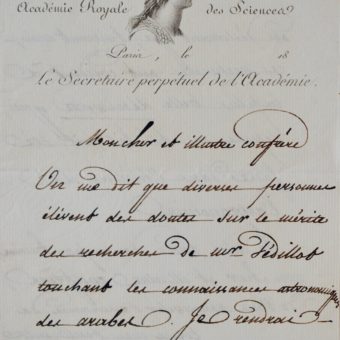 Académie Royale des Sciences
Paris, le 18
Le Secrétaire perpétuel de l'Académie.
Mon cher et illustre confrére
On me dit que diverses personnes
élévent des doutes sur le mérite
des recherches de Mr. Sédillot
touchant les connaissances astronomiques
des arabes. Je rendrai